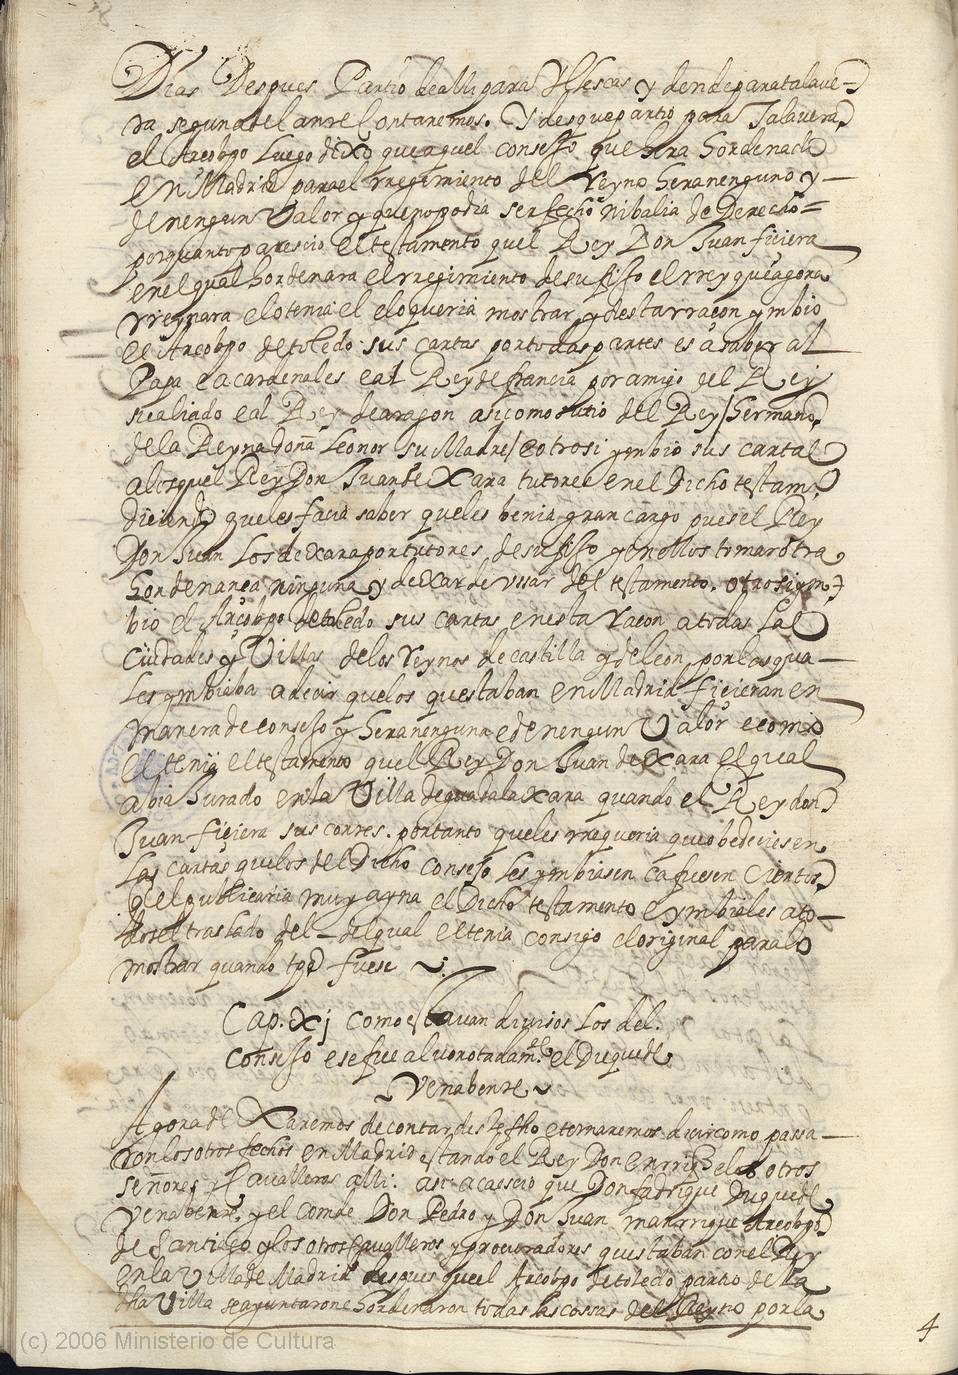 Dias Despues Partio de alli para Yllescas y dende para talave-
ra segun adelante Contaremos. Y desque partio para Talavera
el Arçobpo Luego dixo que aquel consejo que hera hordenado
en Madrid para el rregimiento del Reyno hera nenguno y
de nengun Valor y que no podia ser fecho ni balia de Derecho
porquanto parescio el testamento quel Rey Don Juan ficiera
en el qual hordenara el rregimiento de su fijo el rrey que agora
rreynara e lo tenia el e lo queria mostrar y desta rraçon ymbio
el Arçobpo de toledo sus cartas por todas partes es a saber al
Papa e a cardenales e al Rey de francia por amigo del Rey
y aliado e al Rey de aragon asi como a tio del Rey / hermano
de la Reyna doña Leonor su Madre / e otrosi ymbio sus cartas
a los quel Rey Don Juan dexara tutores en el Dicho testamto
diciendo que les facia saber que les benia gran cargo pues el Rey
Don Juan los dexara por tutores de su fijo y en ellos tomar otra
hordenança ninguna y dexar de vssar del testamento. otrosi ym-
bio el Arçobpo de toledo sus cartas en esta raçon a todas las
Ciudades y Villas de los Reynos de castilla y de leon, por las qua-
les ymbiaba a decir que los questaban en Madrid ficieran en
manera de consejo y hera nenguna e de nengun Valor e como
el tenia el testamento quel Rey Don Juan dexara el qual
abia Jurado en la Villa de guadalaxara quando el Rey don
Juan ficiera sus cortes. por tanto que les rrequeria que obedeciesen
las cartas que los del Dicho consejo les ymbiasen ca fuesen ciertos
q el publicaria muy ayna el Dicho testamento e ymbiales a to-
dos el traslado del - del qual el tenia consigo el original para lo
mostrar quando tpo fuese
Cap. xj como estauan divisos los del
consejo e se fue alvorotadamte el Duque de
Venabente
Agora dexaremos de contar desto fho e tornaremos a decir como passa-
ron los otros fechos en Madrid estando el Rey Don enrrique e los otros
señores y Cavalleros alli. asi acaescio que Don fadrique Duque de
Venabente, y el conde Don Pedro y Don Juan manrrique Arçobpo
de Santiago y los otros Cavalleros y procuradores questaban con el Rey
en la Villa de Madrid despues quel Arçobpo de toledo partio de la
dha Villa se ayuntaron e hordenaron todas las cossas del Reyno por la
4
(c) 2006 Ministerio de Cultura